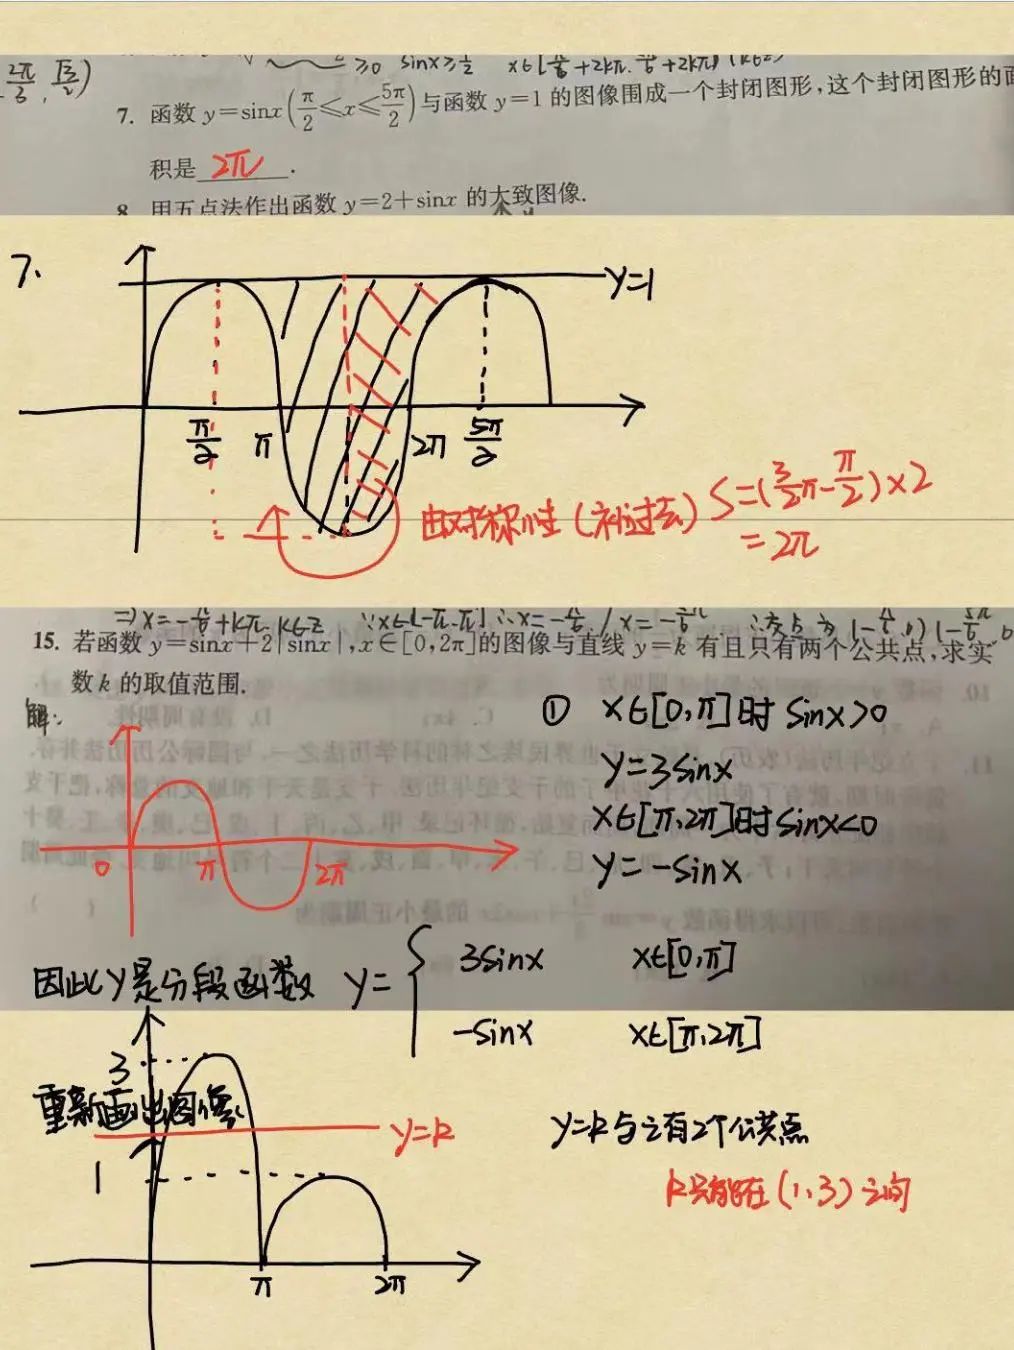 2π/3, √3/2)
≥0 sinx≥1/2 x∈[π/6+2kπ,
7. 函数 y=sinx(π/2≤x≤5π/2)与函数 y=1 的图像围成一个封闭图形,这个封闭图形的面
积是 2π .
8. 用五点法作出函数 y=2+sinx 的大致图像.
7.
y=1
π/2 π 2π 5π/2
由对称性(补过去) S=(3/2π-π/2)×2
=2π
⇒x=-π/6+kπ, k∈Z ∵x∈[-π,π]
15. 若函数 y=sinx+2|sinx|,x∈[0,2π]的图像与直线 y=k 有且只有两个公共点,求实
数 k 的取值范围.
解:
① x∈[0,π]时 sinx>0
y=3sinx
x∈[π,2π]时 sinx<0
y=-sinx
0 π 2π
因此y是分段函数 y={ 3sinx x∈[0,π]
-sinx x∈[π,2π]
3
重新画出图像
y=k
y=k与之有2个公共点
1
k只能在(1,3)之间
π 2π